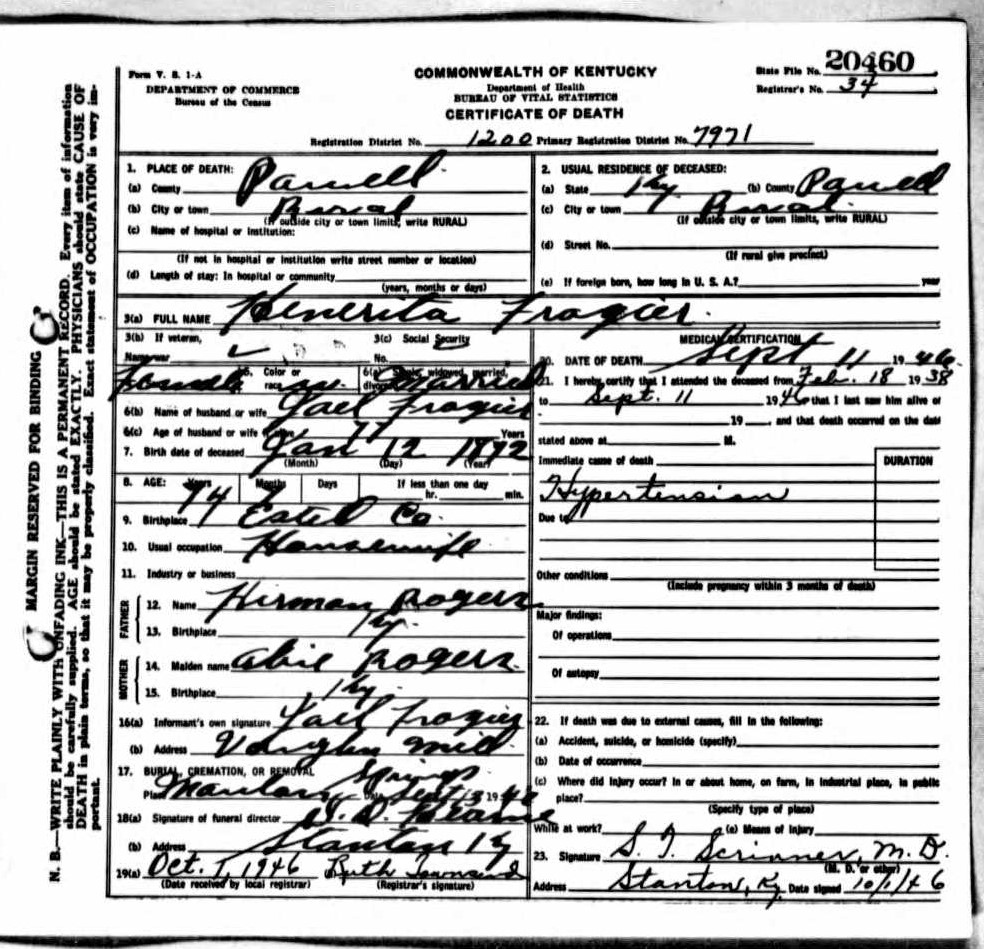 20460
Form V. S. 1-A
DEPARTMENT OF COMMERCE
Bureau of the Census
COMMONWEALTH OF KENTUCKY
Department of Health
BUREAU OF VITAL STATISTICS
CERTIFICATE OF DEATH
State File No.
Registrar's No. 34
Registration District No. 1200 Primary Registration District No. 7971
1. PLACE OF DEATH:
(a) County Powell
(b) City or town Rural
(If outside city or town limits, write RURAL)
(c) Name of hospital or institution:
(If not in hospital or institution write street number or location)
(d) Length of stay: In hospital or community
(years, months or days)
2. USUAL RESIDENCE OF DECEASED:
(a) State Ky (b) County Powell
(c) City or town Rural
(If outside city or town limits, write RURAL)
(d) Street No.
(If rural give precinct)
(e) If foreign born, how long in U. S. A.? year
3(a) FULL NAME Henerita Frazier
3(b) If veteran,
Name war
3(c) Social Security
No.
Female 5. Color or race w. 6(a) Single, widowed, married, Married
6(b) Name of husband or wife Frazier
6(c) Age of husband or wife if alive 77 Years
7. Birth date of deceased Jan 12 1872
(Month) (Day) (Year)
8. AGE: Years 74 Months 7 Days If less than one day
hr. min.
9. Birthplace Estel Co.
10. Usual occupation Housewife
11. Industry or business
FATHER
12. Name Hirman Rogers
13. Birthplace Ky.
MOTHER
14. Maiden name Abie Rogers
15. Birthplace Ky.
16(a) Informant's own signature Frazier
(b) Address Vaughn Mill
17. BURIAL, CREMATION, OR REMOVAL Springs
Place Date Sept 13 1946
18(a) Signature of funeral director
(b) Address Stanton Ky
19(a) Oct. 1, 1946 Ruth Townsend
(Date received by local registrar) (Registrar's signature)
MEDICAL CERTIFICATION
20. DATE OF DEATH Sept 11 1946
21. I hereby certify that I attended the deceased from Feb. 18 1938
to Sept. 11 1946 that I last saw him alive on
19 , and that death occurred on the date
stated above at M.
Immediate cause of death DURATION
Hypertension
Due to
Other conditions
(Include pregnancy within 3 months of death)
Major findings:
Of operations
Of autopsy
22. If death was due to external causes, fill in the following:
(a) Accident, suicide, or homicide (specify)
(b) Date of occurrence
(c) Where did injury occur? In or about home, on farm, in industrial place, in public
place?
(Specify type of place)
While at work? (e) Means of injury
23. Signature M. D.
(M. D. or other)
Address Stanton, Ky. Date signed 10/1/46
MARGIN RESERVED FOR BINDING
N. B.—WRITE PLAINLY WITH UNFADING INK—THIS IS A PERMANENT RECORD. Every item of information
should be carefully supplied. AGE should be stated EXACTLY. PHYSICIANS should state CAUSE OF
DEATH in plain terms, so that it may be properly classified. Exact statement of OCCUPATION is very im-
portant.